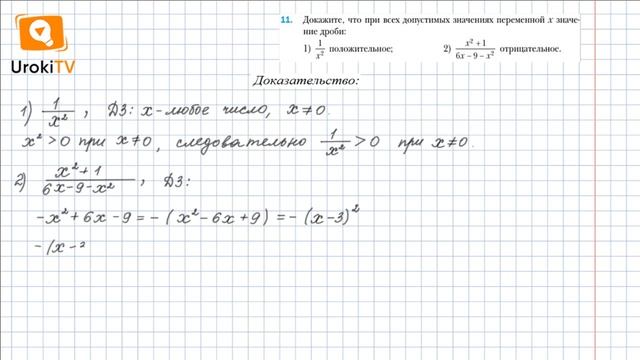 11. Докажите, что при всех допустимых значениях переменной x значе-
ние дроби:
1) 1/x² положительное; 2) (x² + 1)/(6x − 9 − x²) отрицательное.
UrokiTV
Доказательство:
1) 1/x² , ДЗ: x - любое число, x ≠ 0.
x² > 0 при x ≠ 0, следовательно 1/x² > 0 при x ≠ 0.
2) (x² + 1)/(6x − 9 − x²) , ДЗ:
−x² + 6x − 9 = −(x² − 6x + 9) = −(x − 3)²
−(x −